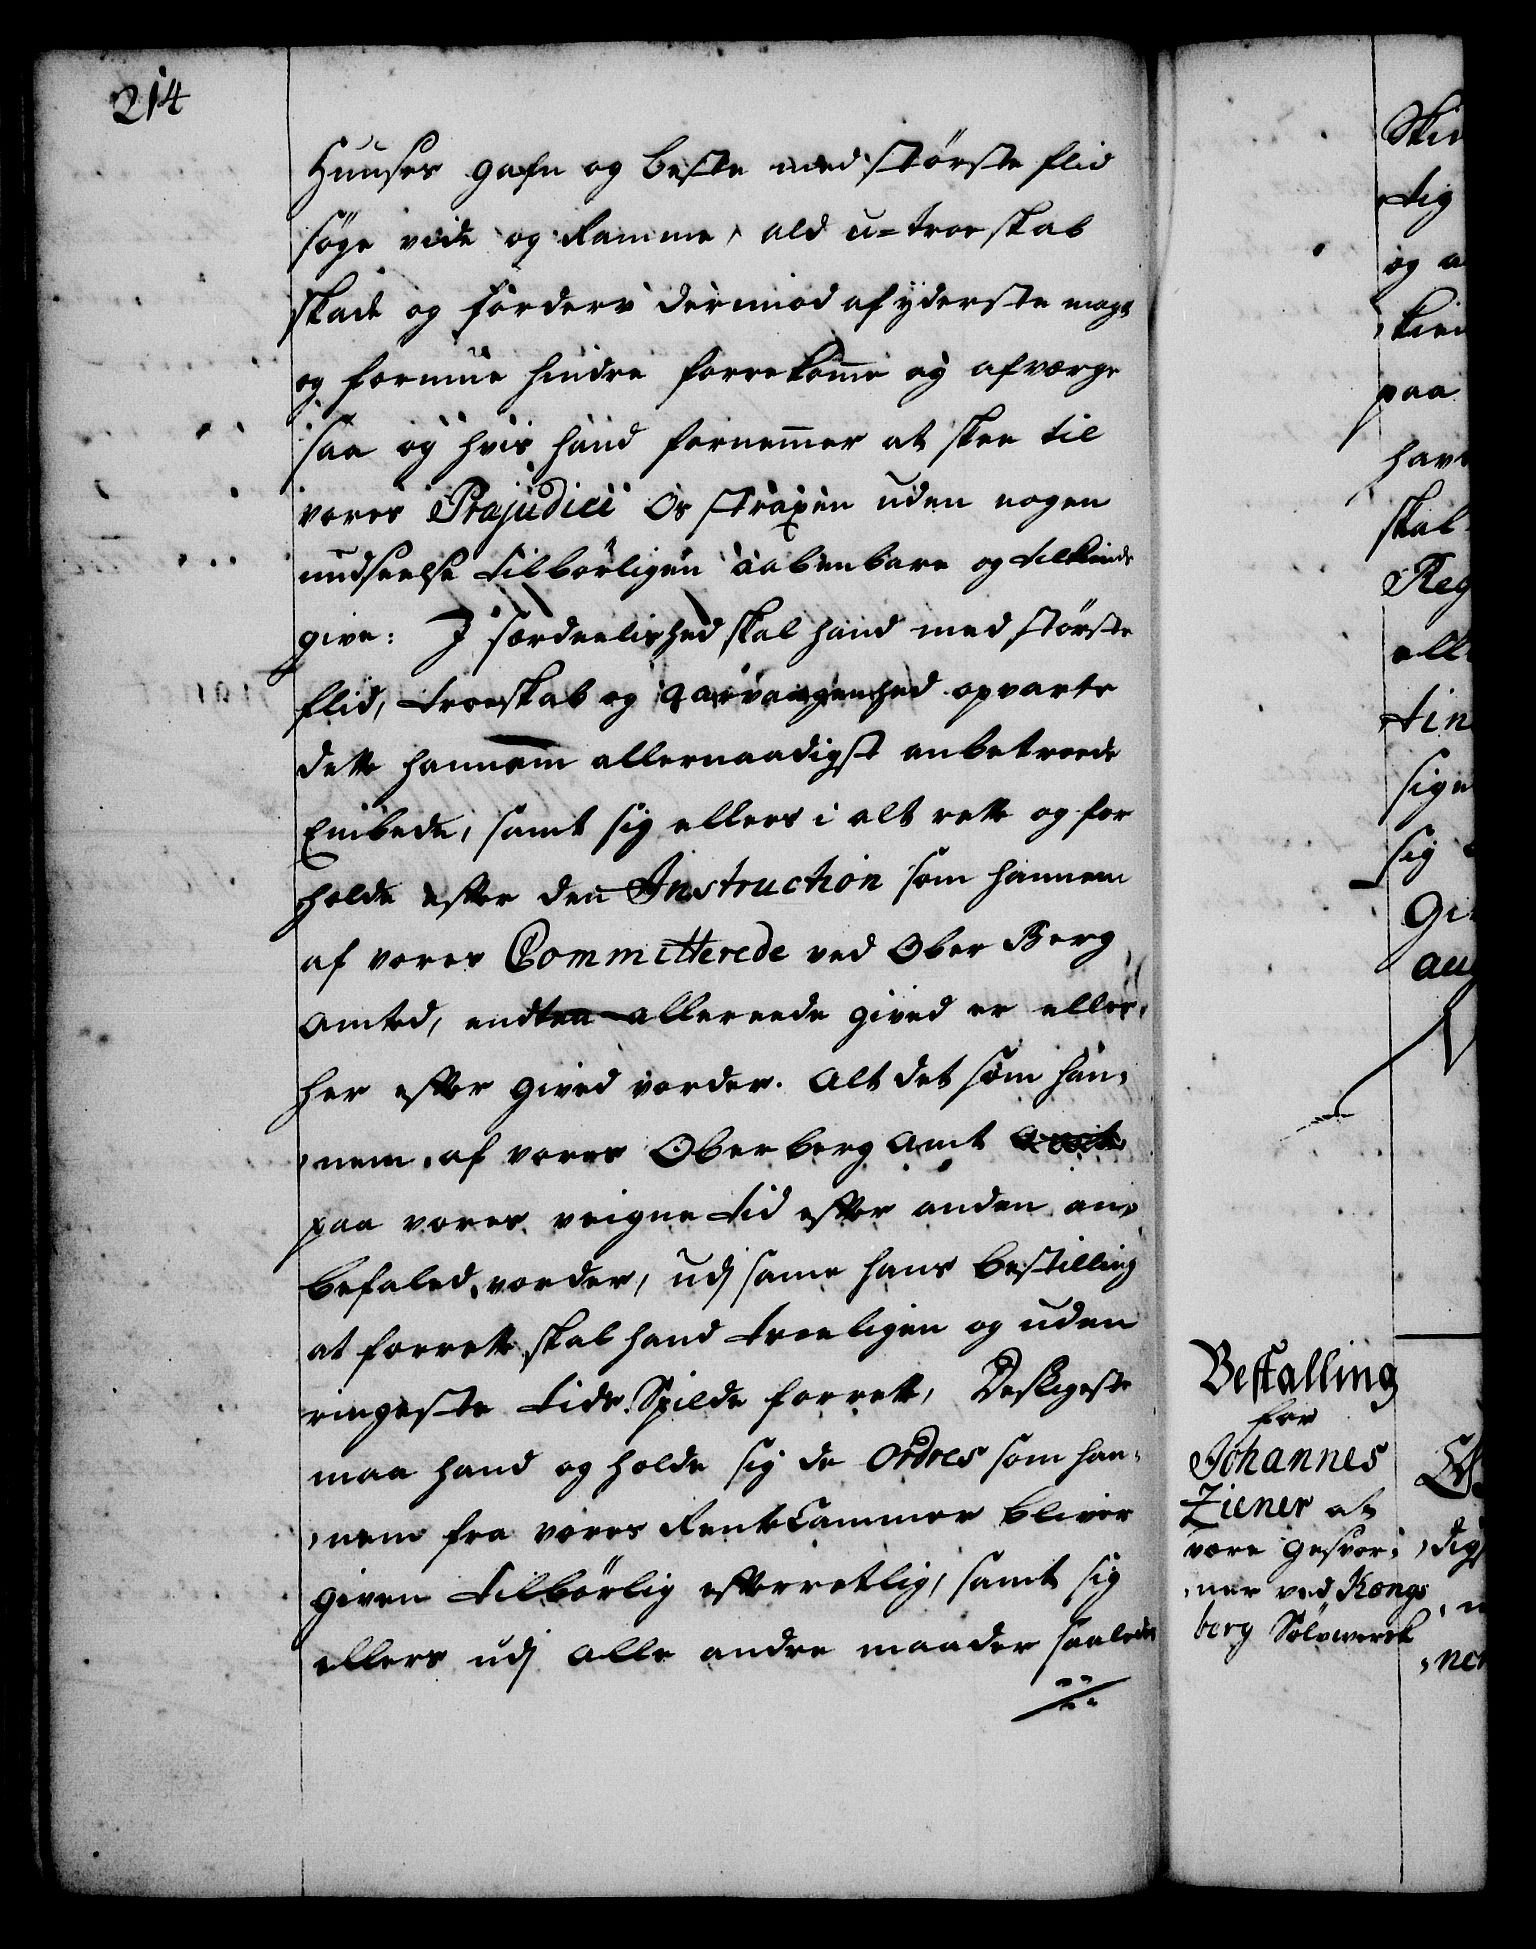 214
Huuses gafn og beste med største flid
søge vide og Ramme, ald u-troeskab
skade og forderv derimod af yderste magt
og formue hindre forrekome og afverge
saa og hvis hand fornemer at skee til
vores Præjudici Os straxen uden nogen
undseelse tilbörligen aabenbare og tilkiende
give: I særdeelished skal hand med største
flid, troeskab og aarvaagenhed opvarte
dette hannem allernaadigst anbetroede
Embede, samt sig ellers i alt rette og for
holde efter den Instruction som hannem
af vores Committerede ved Ober Berg
Amted, endten allereede gived er eller
her efter gived vorder. Alt det som han-
nem af vores Ober berg Amt
paa vores veigne tid efter anden an-
befaled vorder, udj same hans bestilling
at forrette skal hand troeligen og uden
ringeste tids Spilde forrette, Desligeste
maa hand og holde sig de Ordres som han-
nem fra vores RenteCammer bliver
given tilbörlig efterretlig, samt sig
ellers udj alle andre maader saaledes
Bestalling
for
Johannes
Ziener at
være Gesvor-
ner ved Kongs
berg Sølvwerck
tig
og
paa
skal
Reg
sig